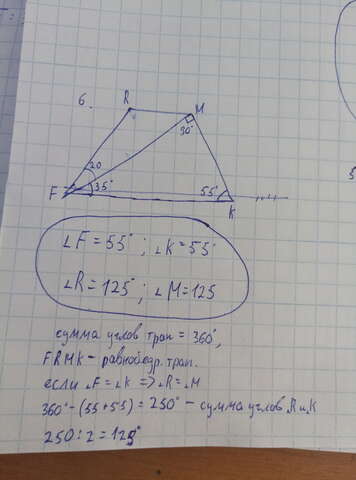 6.
R
M
90°
20
F
35°
55°
K
∠F = 55° ; ∠K = 55°
∠R = 125° ; ∠M = 125
сумма углов трап = 360°,
FRMK – равнобедр. трап.
если ∠F = ∠K => ∠R = ∠M
360° - (55 + 55) = 250° – сумма углов R и K
250 : 2 = 125°